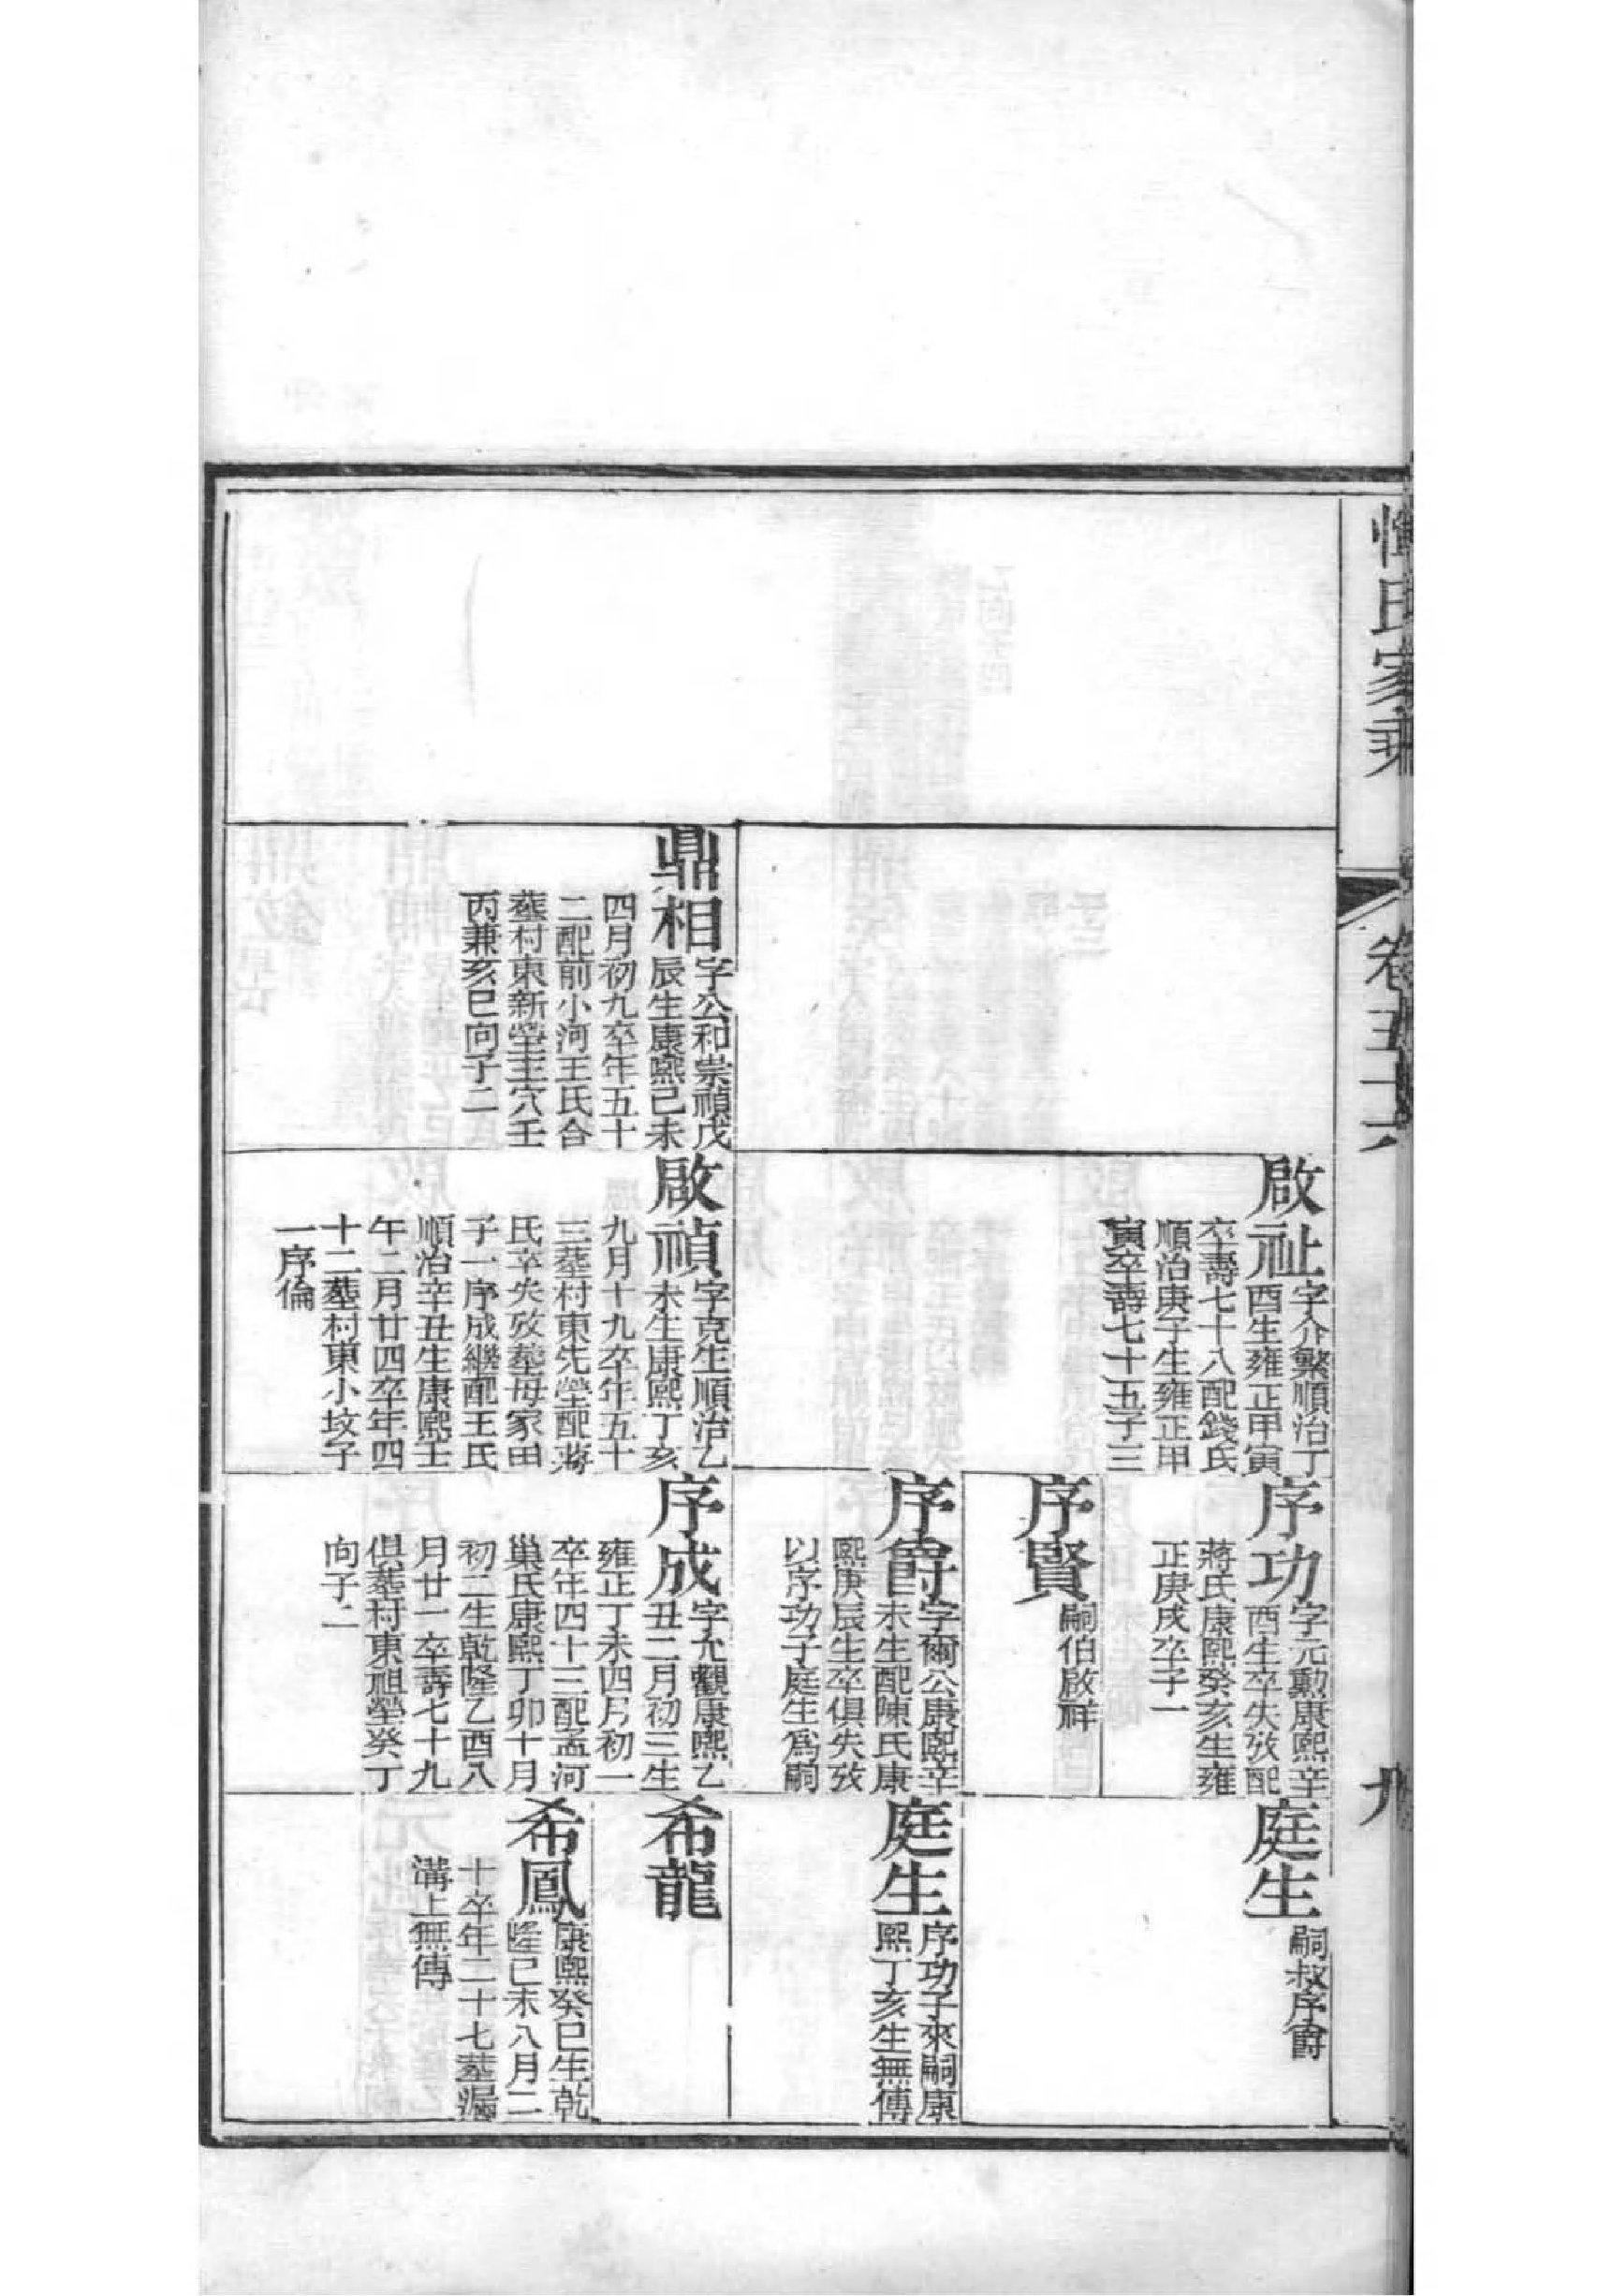 惲氏家乘
卷五十六
九
啟祉
字介繁順治丁
酉生雍正甲寅
卒壽七十八配錢氏
順治庚子生雍正甲
寅卒壽七十五子三
序功
字元勳康熙辛
酉生卒失攷配
蔣氏康熙癸亥生雍
正庚戌卒子一
庭生
嗣叔序爵
序賢
嗣伯啟祥
序爵
字爾公康熙辛
未生配陳氏康
熙庚辰生卒俱失攷
以序功子庭生為嗣
庭生
序功子來嗣康
熙丁亥生無傳
鼎相
字公和崇禎戊
辰生康熙己未
四月初九卒年五十
二配前小河王氏合
塟村東新塋主穴壬
丙兼亥巳向子二
啟禎
字克生順治乙
未生康熙丁亥
九月十九卒年五十
三塟村東先塋配蔣
氏卒失攷塟毋家田
子一序成繼配王氏
順治辛丑生康熙壬
午二月廿四卒年四
十二塟村東小坟子
一序倫
序成
字允觀康熙乙
丑二月初三生
雍正丁未四月初一
卒年四十三配孟河
巢氏康熙丁卯十月
初二生乾隆乙酉八
月廿一卒壽七十九
俱塟村東祖塋癸丁
向子二
希龍
希鳳
康熙癸巳生乾
隆己未八月二
十卒年二十七塟漏
溝上無傳